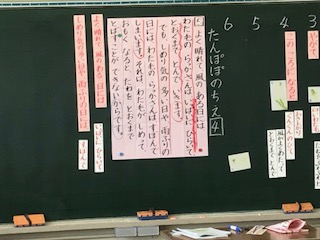 3
やがて
4
このころになると
5
6
たんぽぽのちえ 4
よく晴れて、風のある日には、
わた毛の らっかさんは、いっぱいに ひらいて、
とおくまで とんで いきます。
でも、しめり気の 多い日や、雨ふりの
日には、わた毛の らっかさんは、すぼんで
しまいます。それは、わた毛が しめって、
おもく なると、たねを とおくまで
とばすことが できないからです。
よく晴れて、風のある日には
いっぱいに ひらいて
しめり気の多い日や、雨ふりの日には
すぼんで